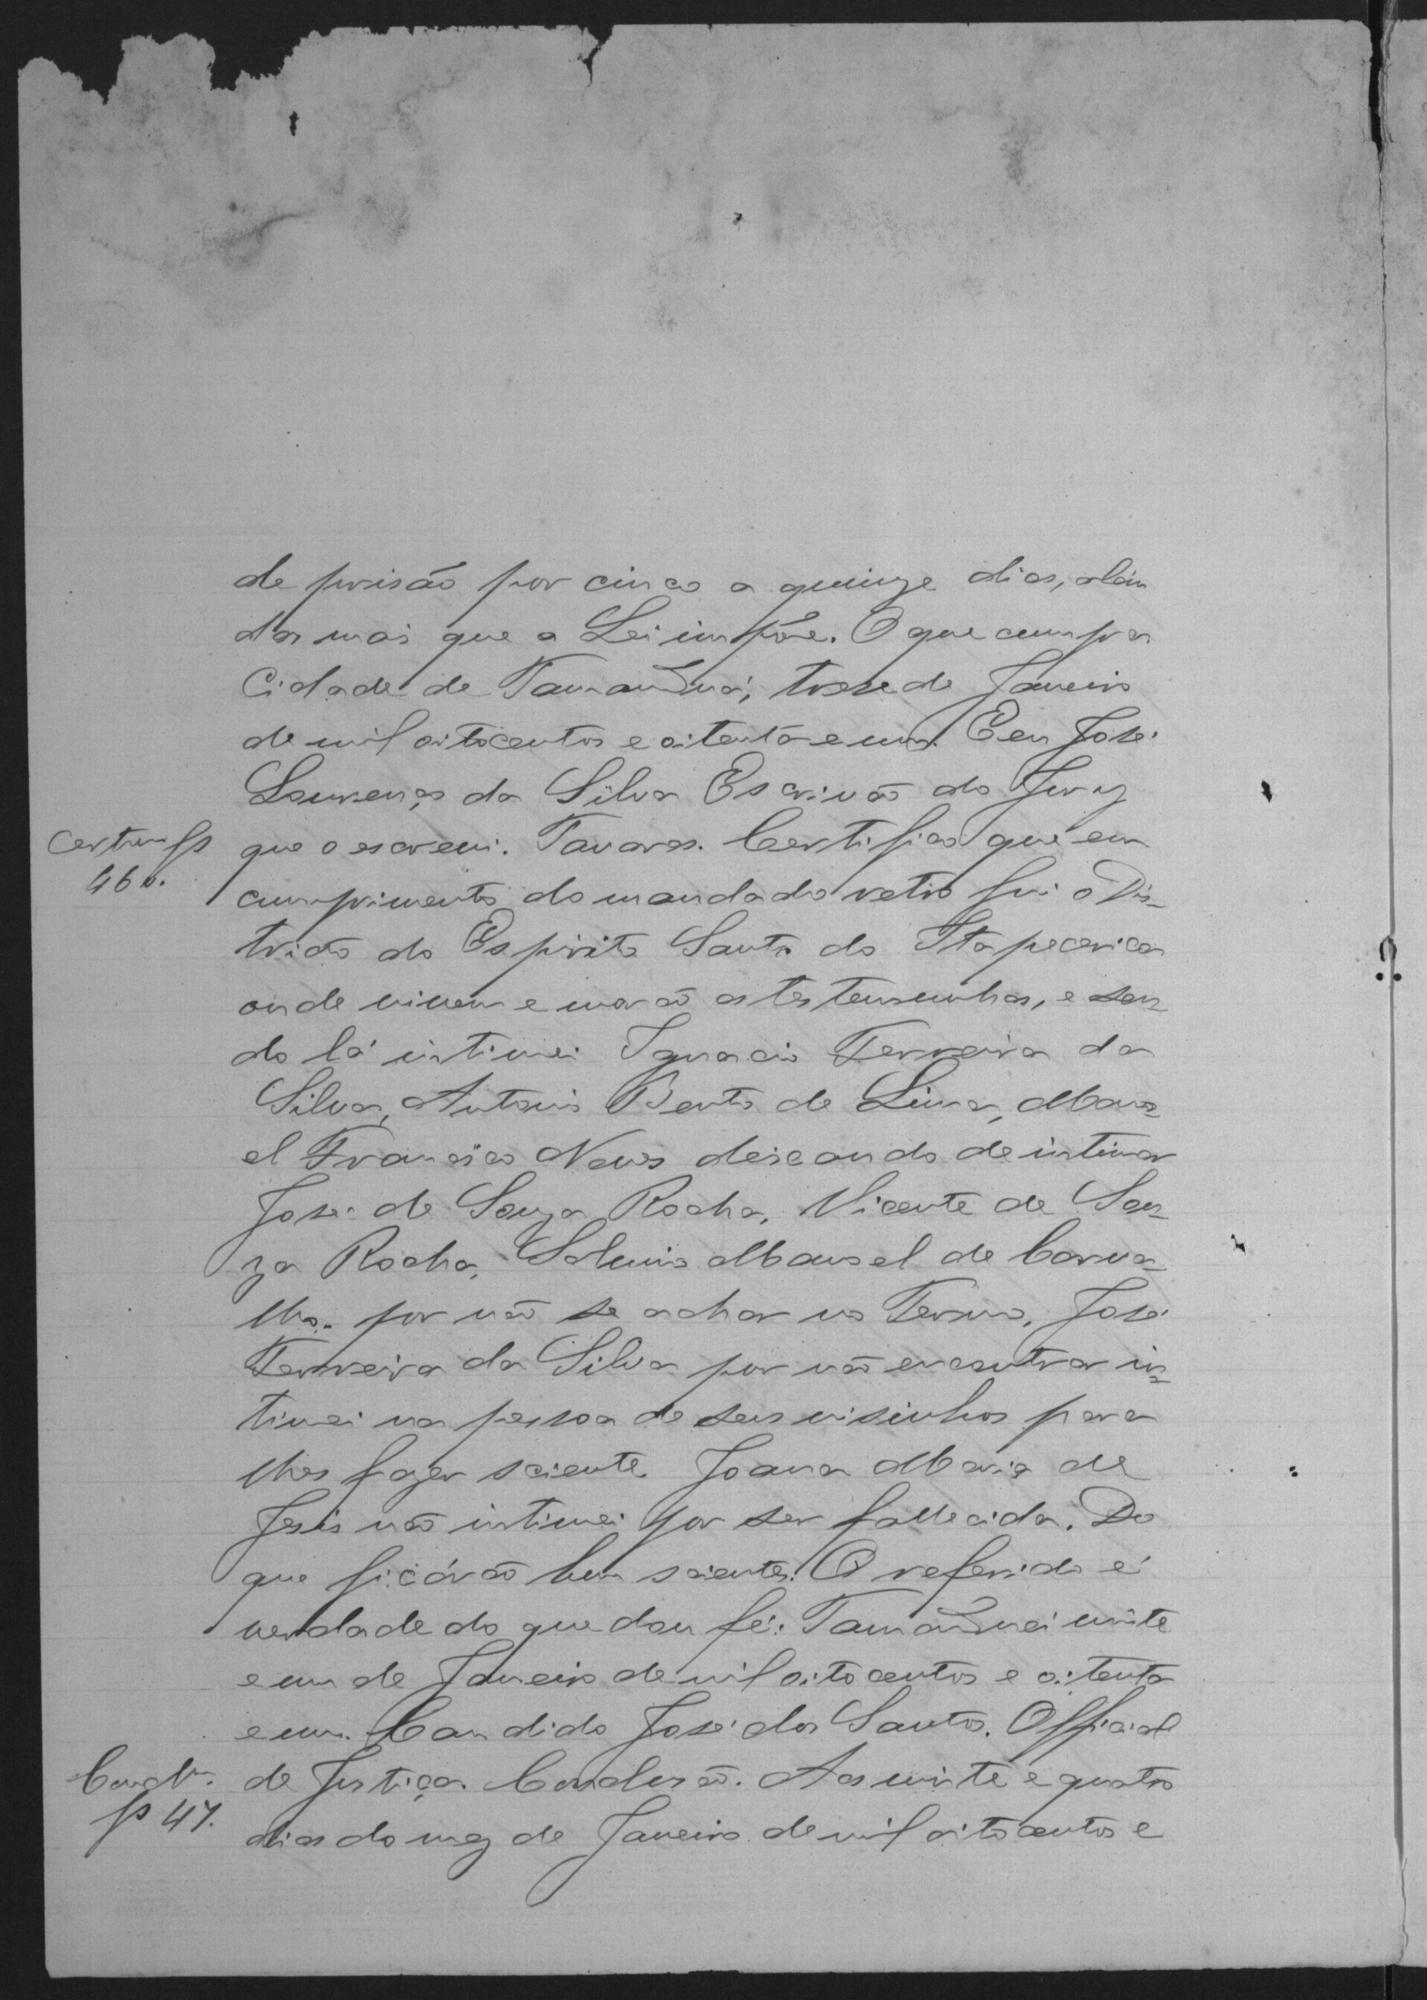 de prisão por cinco a quinze dias, alem
das mais que a Lei impõe. O que cumpra
Cidade de Tamanduá, trese de Janeiro
de mil oitocentos e oitenta e um. E eu José
Lourenço da Silva Escrivão do Jury
que o escrevi. Tavares. Certifico que em
Certam fs
46 v.
cumprimento do mandado retro fui o Dis-
tricto do Espirito Santo do Itapecerica
onde vivem e morão as testemunhas, e sen-
do lá intimei Ignacio Ferreira da
Silva, Antonio Bento de Lima, Mano-
el Francisco Neves deixando de intimar
José de Souza Rocha, Vicente de Sou-
za Rocha, Manoel de Carva-
lho. por não se achar no Termo, José
Ferreira da Silva por não encontrar in-
timei na pessoa de seus visinhos para
lhes fazer sciente Joana Maria de
Jesus não intimei por ser fallecida. Do
que ficárão bem scientes. O referido é
verdade do que dou fé. Tamanduá vinte
e um de Janeiro de mil oitocentos e oitenta
e um. Candido José dos Santos. Official
de Justiça. Conclusão. Aos vinte e quatro
Concl.am
fs 47.
dias do mez de Janeiro de mil oitocentos e